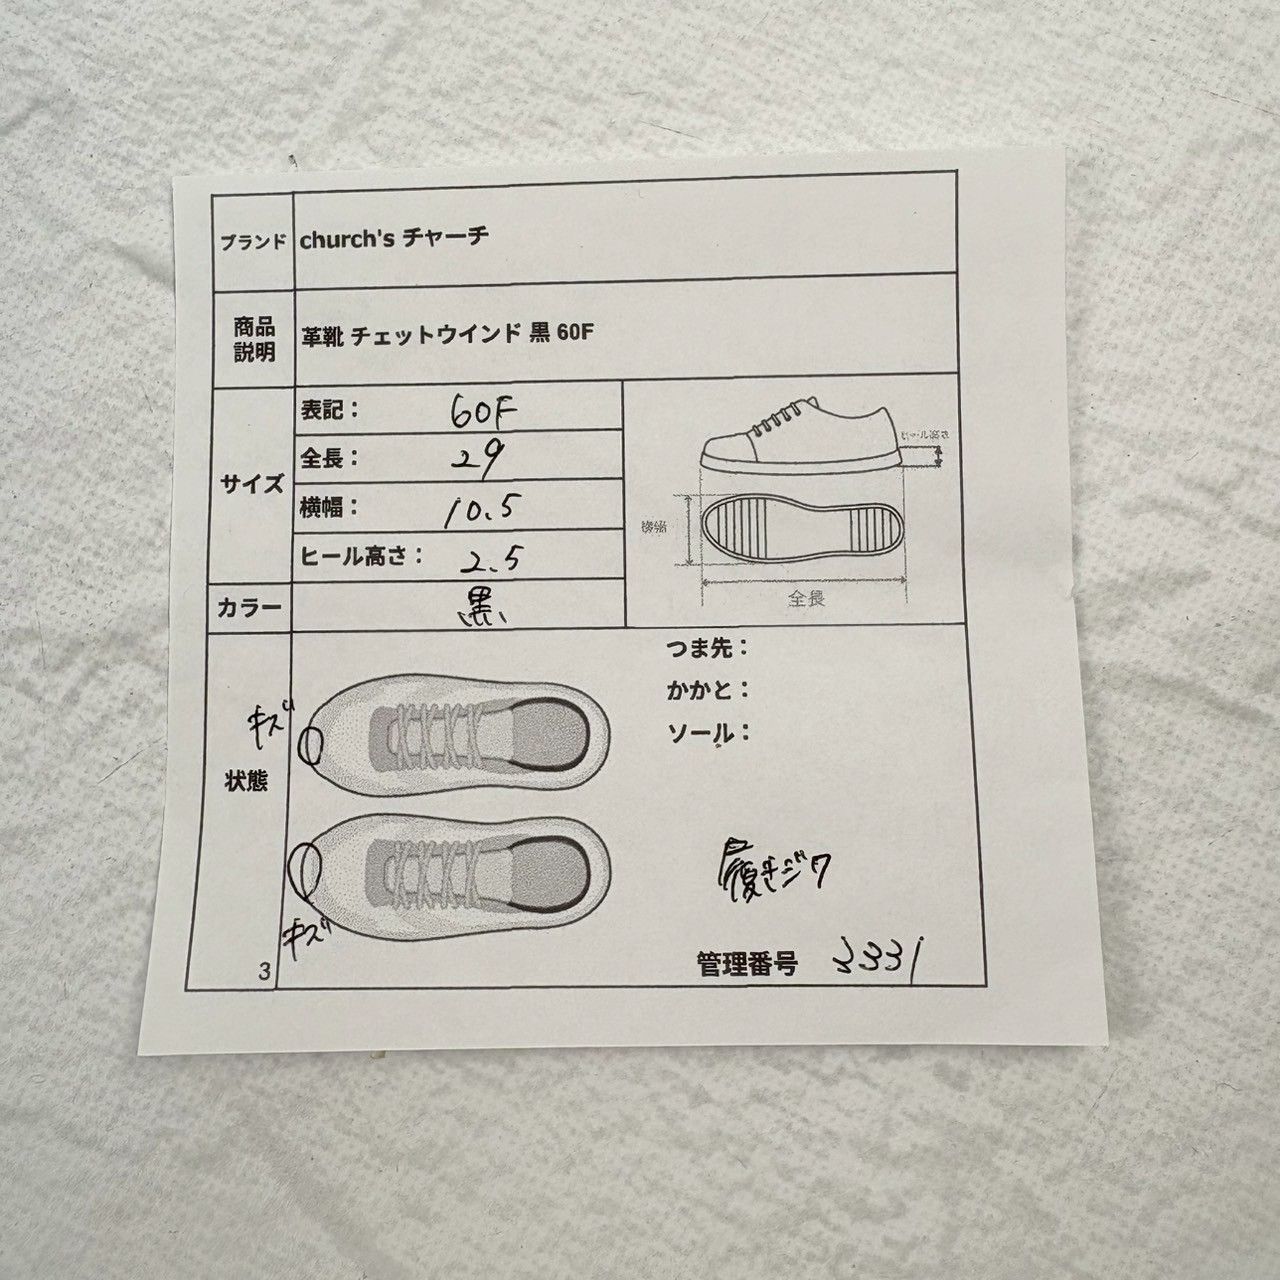 ブランド church's チャーチ
商品説明 革靴 チェットウインド 黒 60F
サイズ
表記： 60F
全長： 29
横幅： 10.5
ヒール高さ： 2.5
ヒール高さ
横幅
全長
カラー 黒
状態
キズ
キズ
つま先：
かかと：
ソール：
履きジワ
管理番号 3331
3